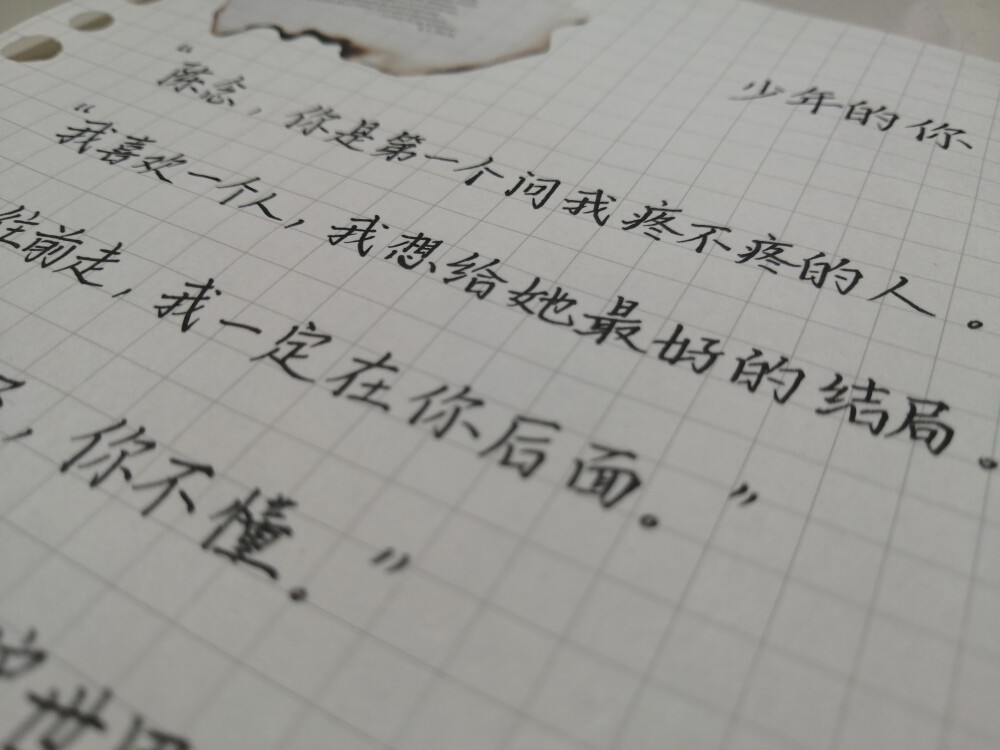 少年的你
“陈念，你是第一个问我疼不疼的人。
“我喜欢一个人，我想给她最好的结局。
往前走，我一定在你后面。”
，你不懂。”
世界